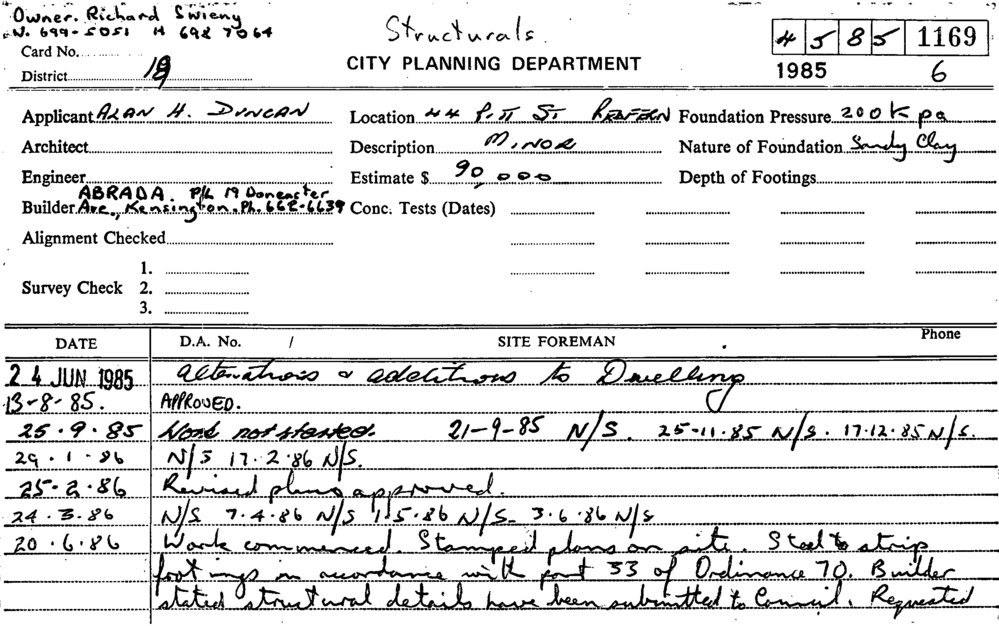 Owner. Richard Swieny
W. 699-5051 H 698 7064
Structurals.
4 5 8 5 1169
Card No.
CITY PLANNING DEPARTMENT
1985 6
District
Applicant ALAN H. DUNCAN Location 44 PITT ST REDFERN Foundation Pressure 200 k pa
Architect Description MINOR Nature of Foundation Sandy Clay
Engineer Estimate $ 90,000 Depth of Footings
ABRADA. P/L 19 Doncaster
Builder Ave., Kensington. Ph. 662-6639 Conc. Tests (Dates)
Alignment Checked
1.
Survey Check 2.
3.
DATE D.A. No. / SITE FOREMAN Phone
24 JUN 1985 Alterations & additions to Dwelling
13-8-85. APPROVED.
25.9.85 Work not started. 21-9-85 N/S. 25-11-85 N/S. 17.12.85 N/S.
29.1.86 N/S 17.2.86 N/S.
25-2.86 Revised plans approved.
24.3.86 N/S 7.4.86 N/S 1.5.86 N/S- 3.6.86 N/S
20.6.86 Work commenced. Stamped plans on site. Steel to strip
footings in accordance with part 33 of Ordinance 70. Builder
stated structural details have been submitted to Council. Requested